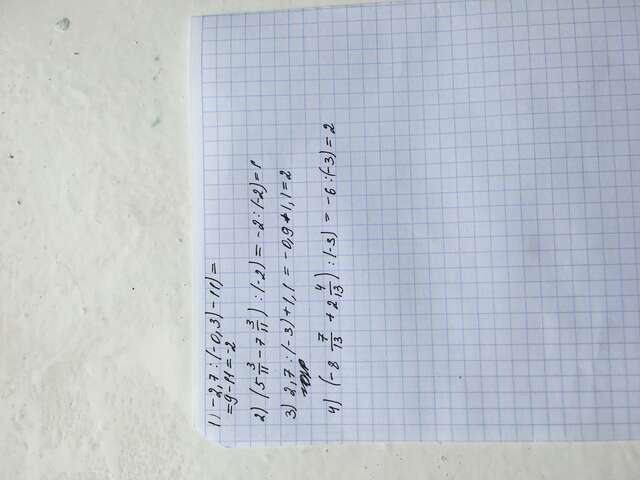 1) -2,7 : (-0,3) - 11) =
= 9 - 11 = -2
2) (5 3/11 - 7 3/11) : (-2) = -2 : (-2) = 1
3) 2,7 : (-3) + 1,1 = -0,9 + 1,1 = 2
4) (-8 7/13 + 2 4/13) : (-3) = -6 : (-3) = 2